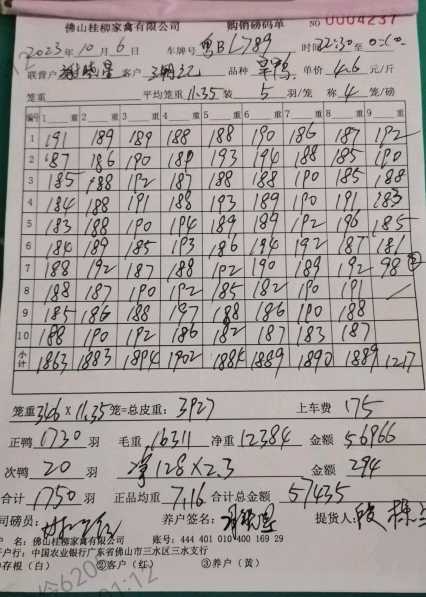 佛山桂柳家禽有限公司 购销磅码单 NO 0004237
2023年10月6日 车牌号 粤BL789 时间22:30至
联营户 客户 品种 旱鸭 单价 4.6 元/斤
笼重 平均笼重 11.35 装 5 羽/笼 称 4 笼/磅
编号 1 重 2 重 3 重 4 重 5 重 6 重 7 重 8 重 9 重
1 191 189 189 188 188 190 186 187 192
2 187 186 190 189 193 194 188 185 190
3 185 188 192 187 188 188 190 185 188
4 184 188 191 188 193 189 190 191 183
5 183 188 190 194 189 189 192 196 185
6 184 189 185 193 186 194 192 187 181
7 188 192 187 188 192 190 189 192 98 ②
8 188 187 190 192 185 182 190 191
9 185 186 188 197 188 186 190 188
10 188 190 192 186 182 187 183 187
小计 1863 1883 1894 1902 1884 1889 1890 1889 1217
笼重 346 x 11.35 笼=总皮重: 3927 上车费 175
正鸭 1730 羽 毛重 16311 净重 12384 金额 56966
次鸭 20 羽 净 128 x 2.3 金额 294
合计 1750 羽 正品均重 7.16 合计总金额 57435
司磅员: 养户签名: 提货人:
户 名: 佛山桂柳家禽有限公司 账号: 444 401 010 400 169 29
开户行: 中国农业银行广东省佛山市三水区三水支行
①存根(白) ②客户(红) ③养户(黄)